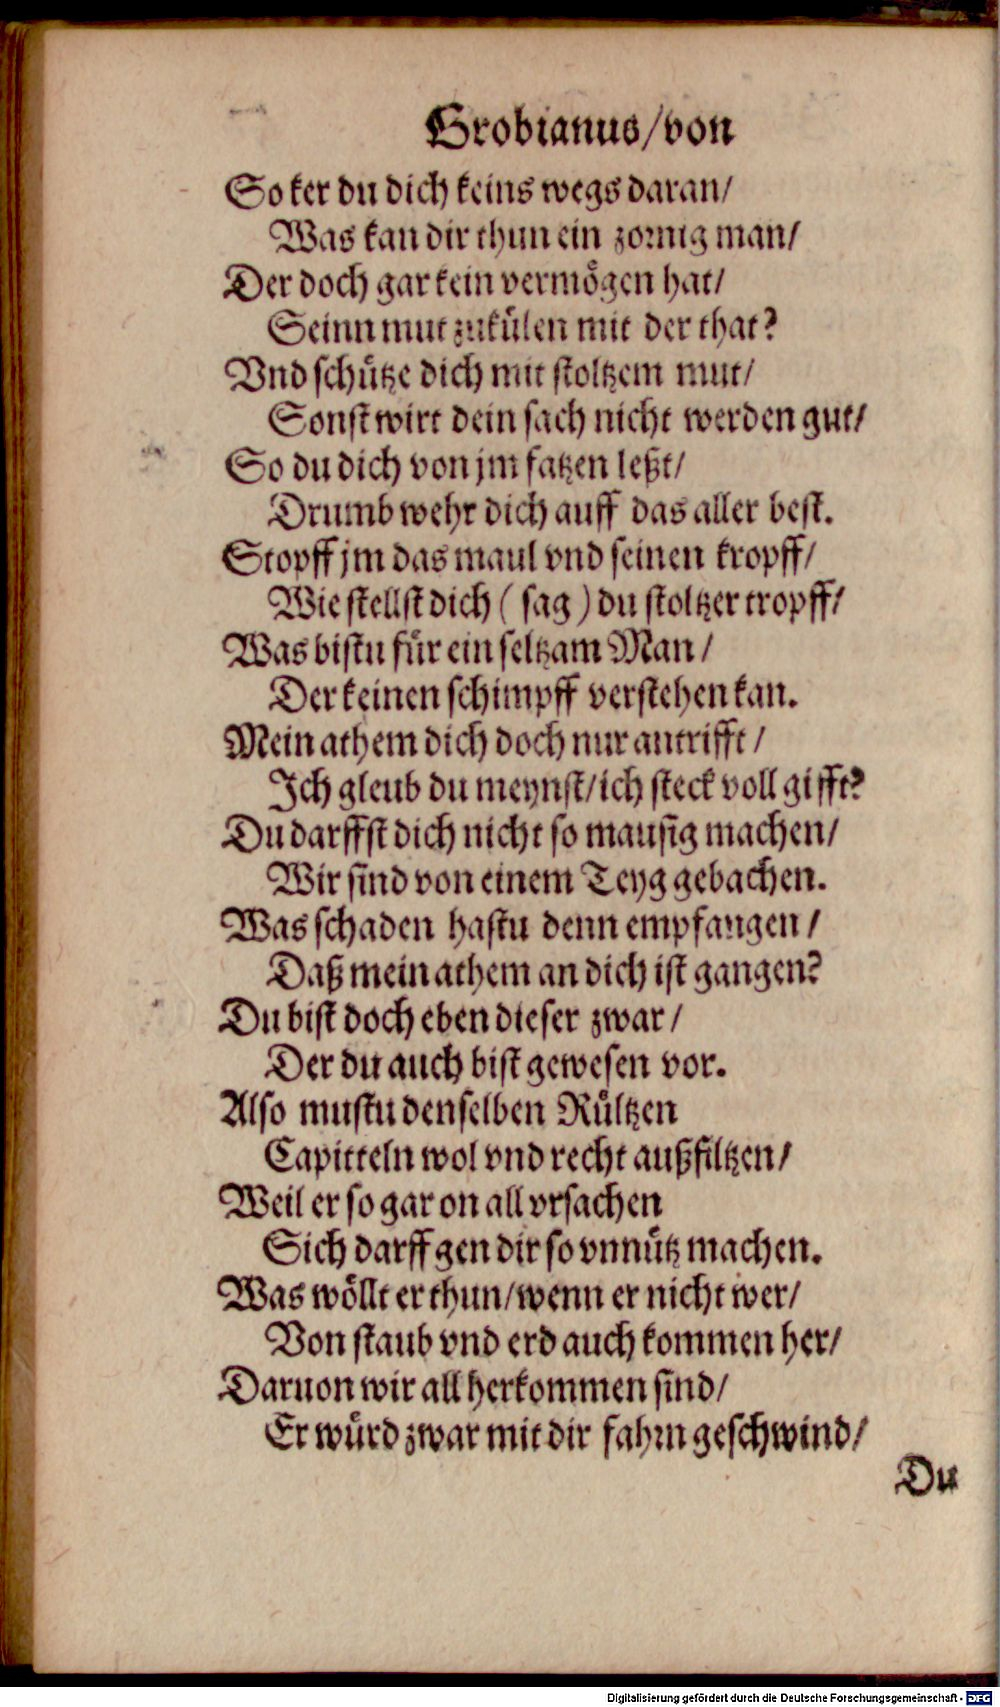 Grobianus/von
So ker du dich keins wegs daran/
Was kan dir thun ein zornig man/
Der doch gar kein vermögen hat/
Seinn mut zukülen mit der that?
Vnd schütze dich mit stoltzem mut/
Sonst wirt dein sach nicht werden gut/
So du dich von jm fatzen leßt/
Drumb wehr dich auff das aller best.
Stopff jm das maul vnd seinen kropff/
Wie stellst dich ( sag ) du stoltzer tropff/
Was bistu für ein seltzam Man/
Der keinen schimpff verstehen kan.
Mein athem dich doch nur antrifft/
Ich gleub du meynst/ich steck voll gifft?
Du darffst dich nicht so mausig machen/
Wir sind von einem Teyg gebachen.
Was schaden hastu denn empfangen/
Daß mein athem an dich ist gangen?
Du bist doch eben dieser zwar/
Der du auch bist gewesen vor.
Also mustu denselben Rültzen
Capitteln wol vnd recht außfiltzen/
Weil er so gar on all vrsachen
Sich darff gen dir so vnnütz machen.
Was wöllt er thun/wenn er nicht wer/
Von staub vnd erd auch kommen her/
Daruon wir all herkommen sind/
Er würd zwar mit dir fahrn geschwind/
Du
Digitalisierung gefördert durch die Deutsche Forschungsgemeinschaft - DFG